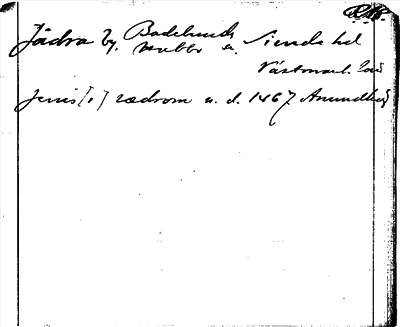 R.A.
Jädra by, Badelunds
Hubbo a. Siende hd
Västmanl. län
Jenis[i] rædrom u. d. 1467 Anundhög